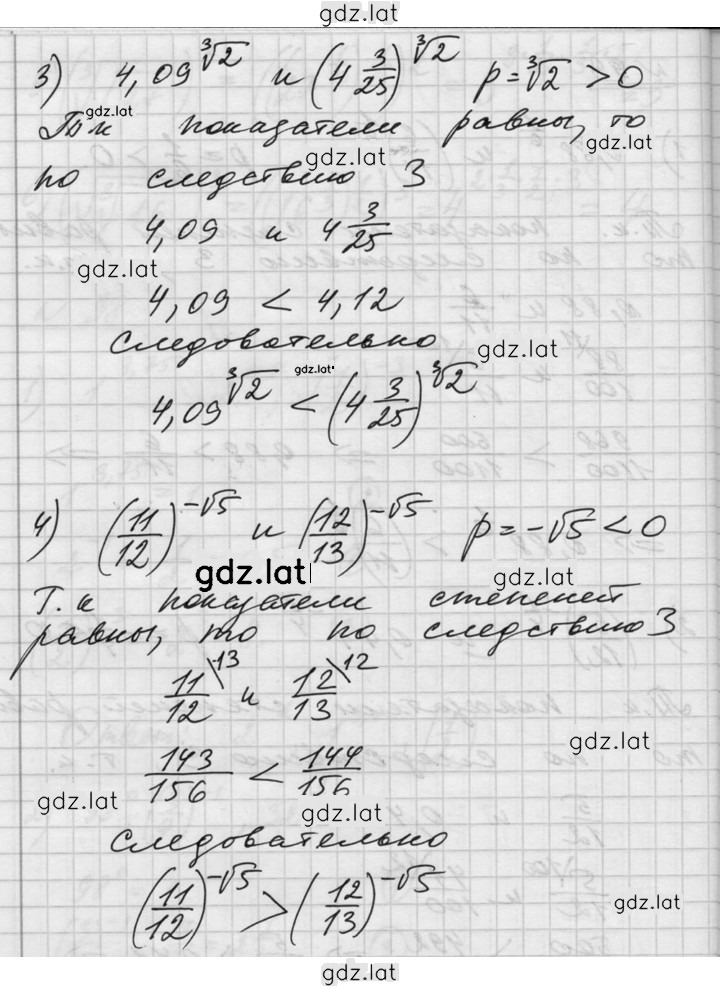 gdz.lat
3) 4,09^∛2 и (4 3/25)^∛2 p = ∛2 > 0
gdz.lat
Т.к показатели равны, то
gdz.lat
gdz.lat
по следствию 3
4,09 и 4 3/25
gdz.lat
4,09 < 4,12
Следовательно
gdz.lat
gdz.lat
4,09^∛2 < (4 3/25)^∛2
4) (11/12)^-√5 и (12/13)^-√5 p = -√5 < 0
gdz.lat
Т.к показатели степеней
равны, то по следствию 3
11/12 \13 и 12/13 \12
gdz.lat
143/156 < 144/156
gdz.lat
gdz.lat
Следовательно
(11/12)^-√5 > (12/13)^-√5
gdz.lat
gdz.lat